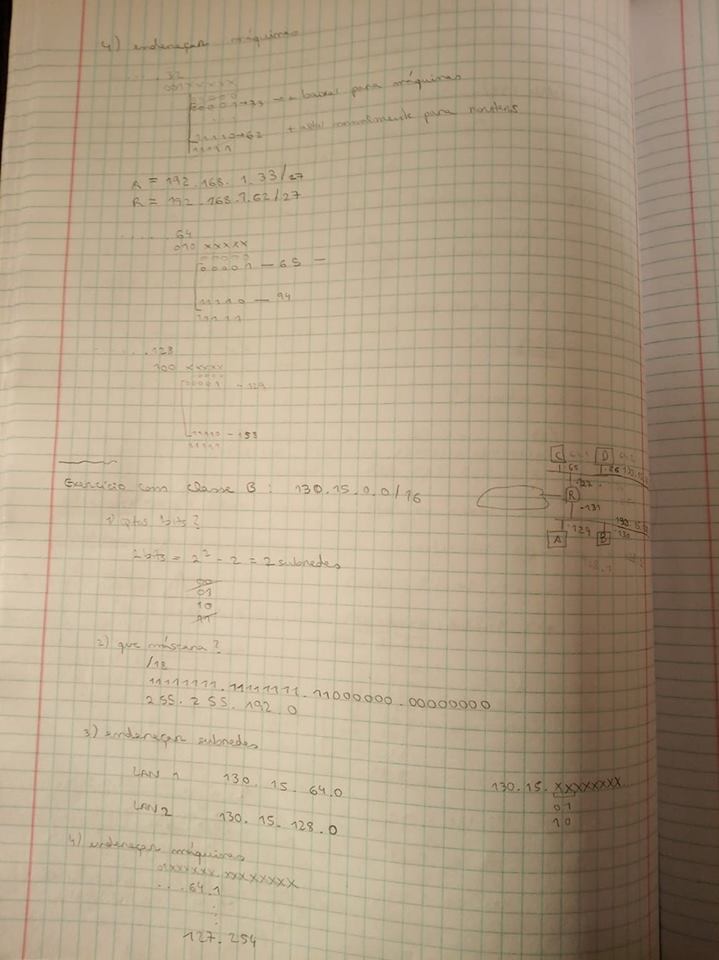 4) endereçar máquinas
. . . . . 32
001xxxxx
00000
00001→33 → + baixo para máquinas
11110→62 + alto normalmente para routers
11111
A = 192.168.1.33/27
R = 192.168.1.62/27
. . . . . 64
010 xxxxx
00000
00001 — 65 —
11110 — 94
11111
. . . . 128
100 xxxxx
00000
00001 - 129
11110 - 158
11111
Exercício com classe B : 130.15.0.0/16
1) qtos bits?
2 bits = 2² - 2 = 2 subredes
00
01
10
11
2) que máscara?
/18
11111111.11111111.11000000.00000000
255.255.192.0
3) endereçar subredes
LAN 1 130.15.64.0
LAN 2 130.15.128.0
130.15.xxxxxxxx
01
10
4) endereçar máquinas
01xxxxxx.xxxxxxxx
. . . 64.1
127.254
C
D
R
A
B